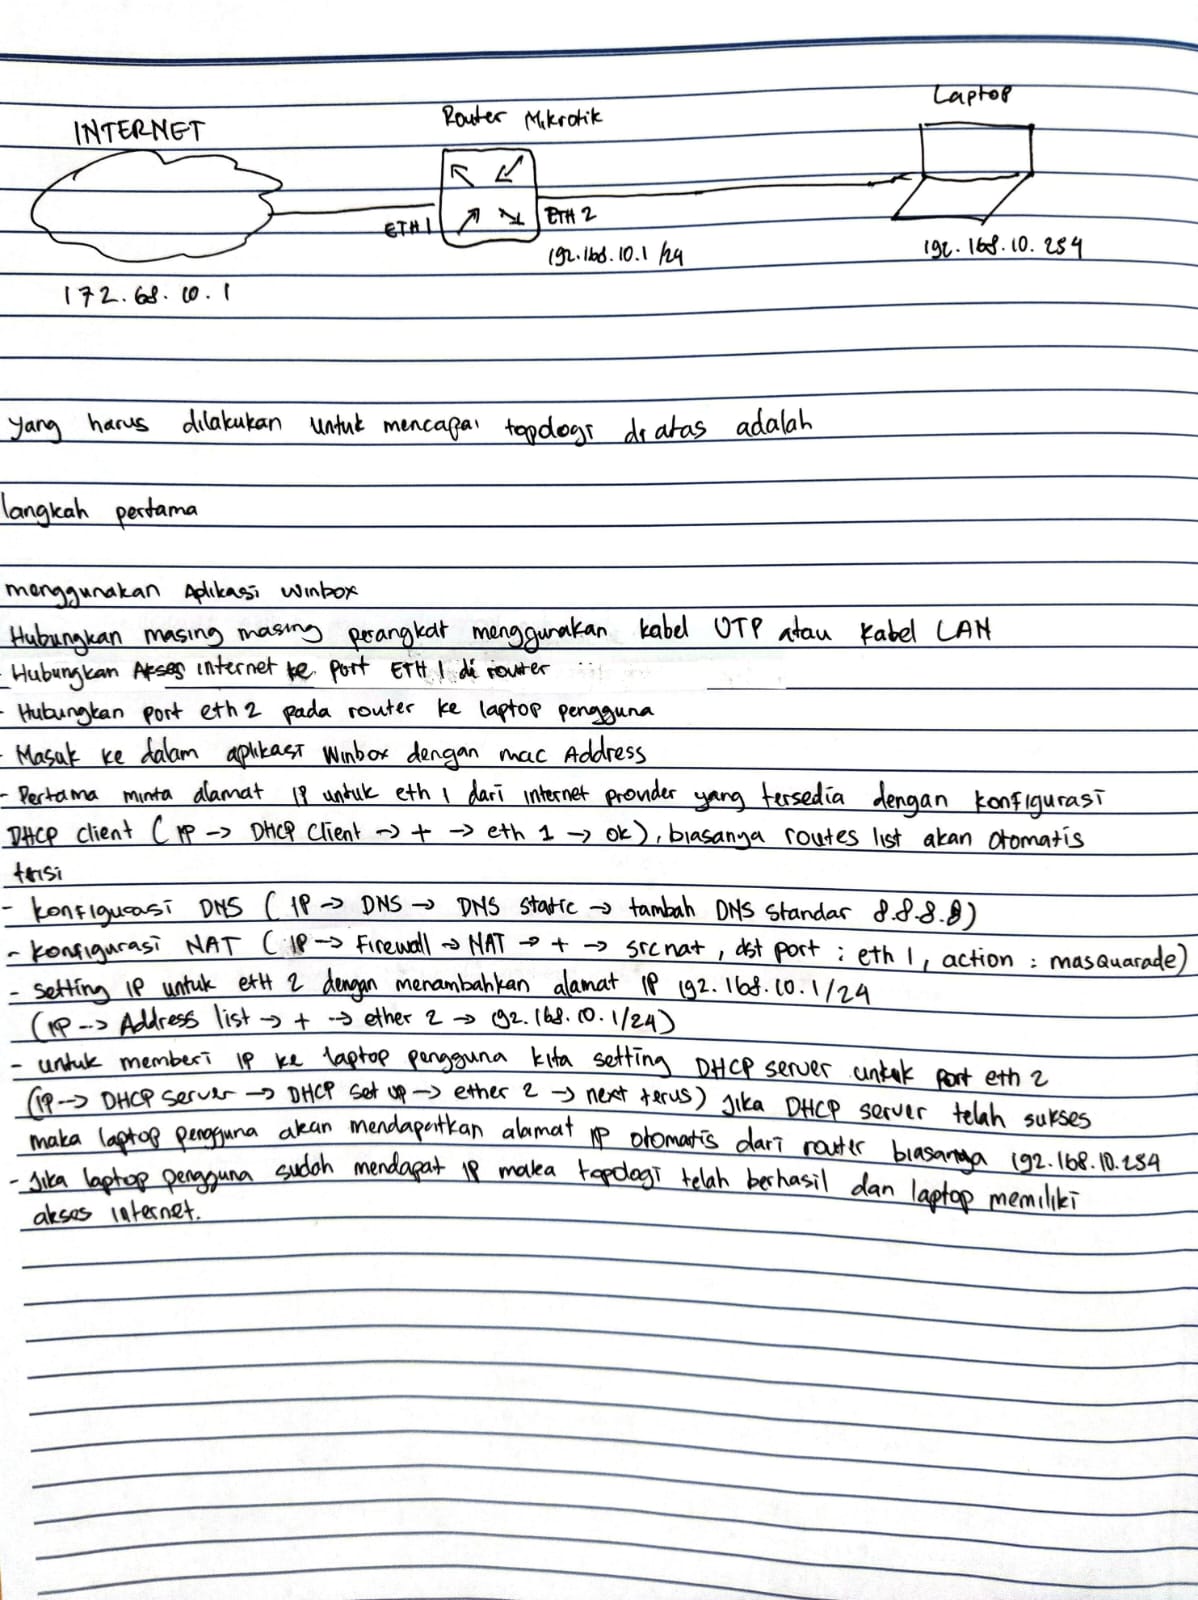 Laptop
Router Mikrotik
INTERNET
ETH 1
ETH 2
192.168.10.1 /24
192.168.10.254
172.68.10.1
yang harus dilakukan untuk mencapai topologi di atas adalah
langkah pertama
menggunakan Aplikasi Winbox
Hubungkan masing masing perangkat menggunakan kabel UTP atau Kabel LAN
- Hubungkan Akses internet ke Port ETH 1 di router
- Hubungkan port eth 2 pada router ke laptop pengguna
- Masuk ke dalam aplikasi Winbox dengan mac Address
- Pertama minta alamat IP untuk eth 1 dari internet provider yang tersedia dengan konfigurasi
DHCP client ( IP -> DHCP Client -> + -> eth 1 -> ok), biasanya routes list akan otomatis
terisi
- konfigurasi DNS ( IP -> DNS -> DNS static -> tambah DNS Standar 8.8.8.8)
- konfigurasi NAT ( IP -> Firewall -> NAT -> + -> srcnat, dst port : eth 1, action : masquarade)
- setting IP untuk etH 2 dengan menambahkan alamat IP 192.168.10.1/24
(IP --> Address list -> + -> ether 2 -> 192.168.10.1/24)
- untuk memberi IP ke laptop pengguna kita setting DHCP server untuk port eth 2
(IP -> DHCP server -> DHCP set up -> ether 2 -> next terus) Jika DHCP server telah sukses
maka laptop pengguna akan mendapatkan alamat IP otomatis dari router biasanya 192.168.10.254
- Jika laptop pengguna sudah mendapat IP maka topologi telah berhasil dan laptop memiliki
akses internet.